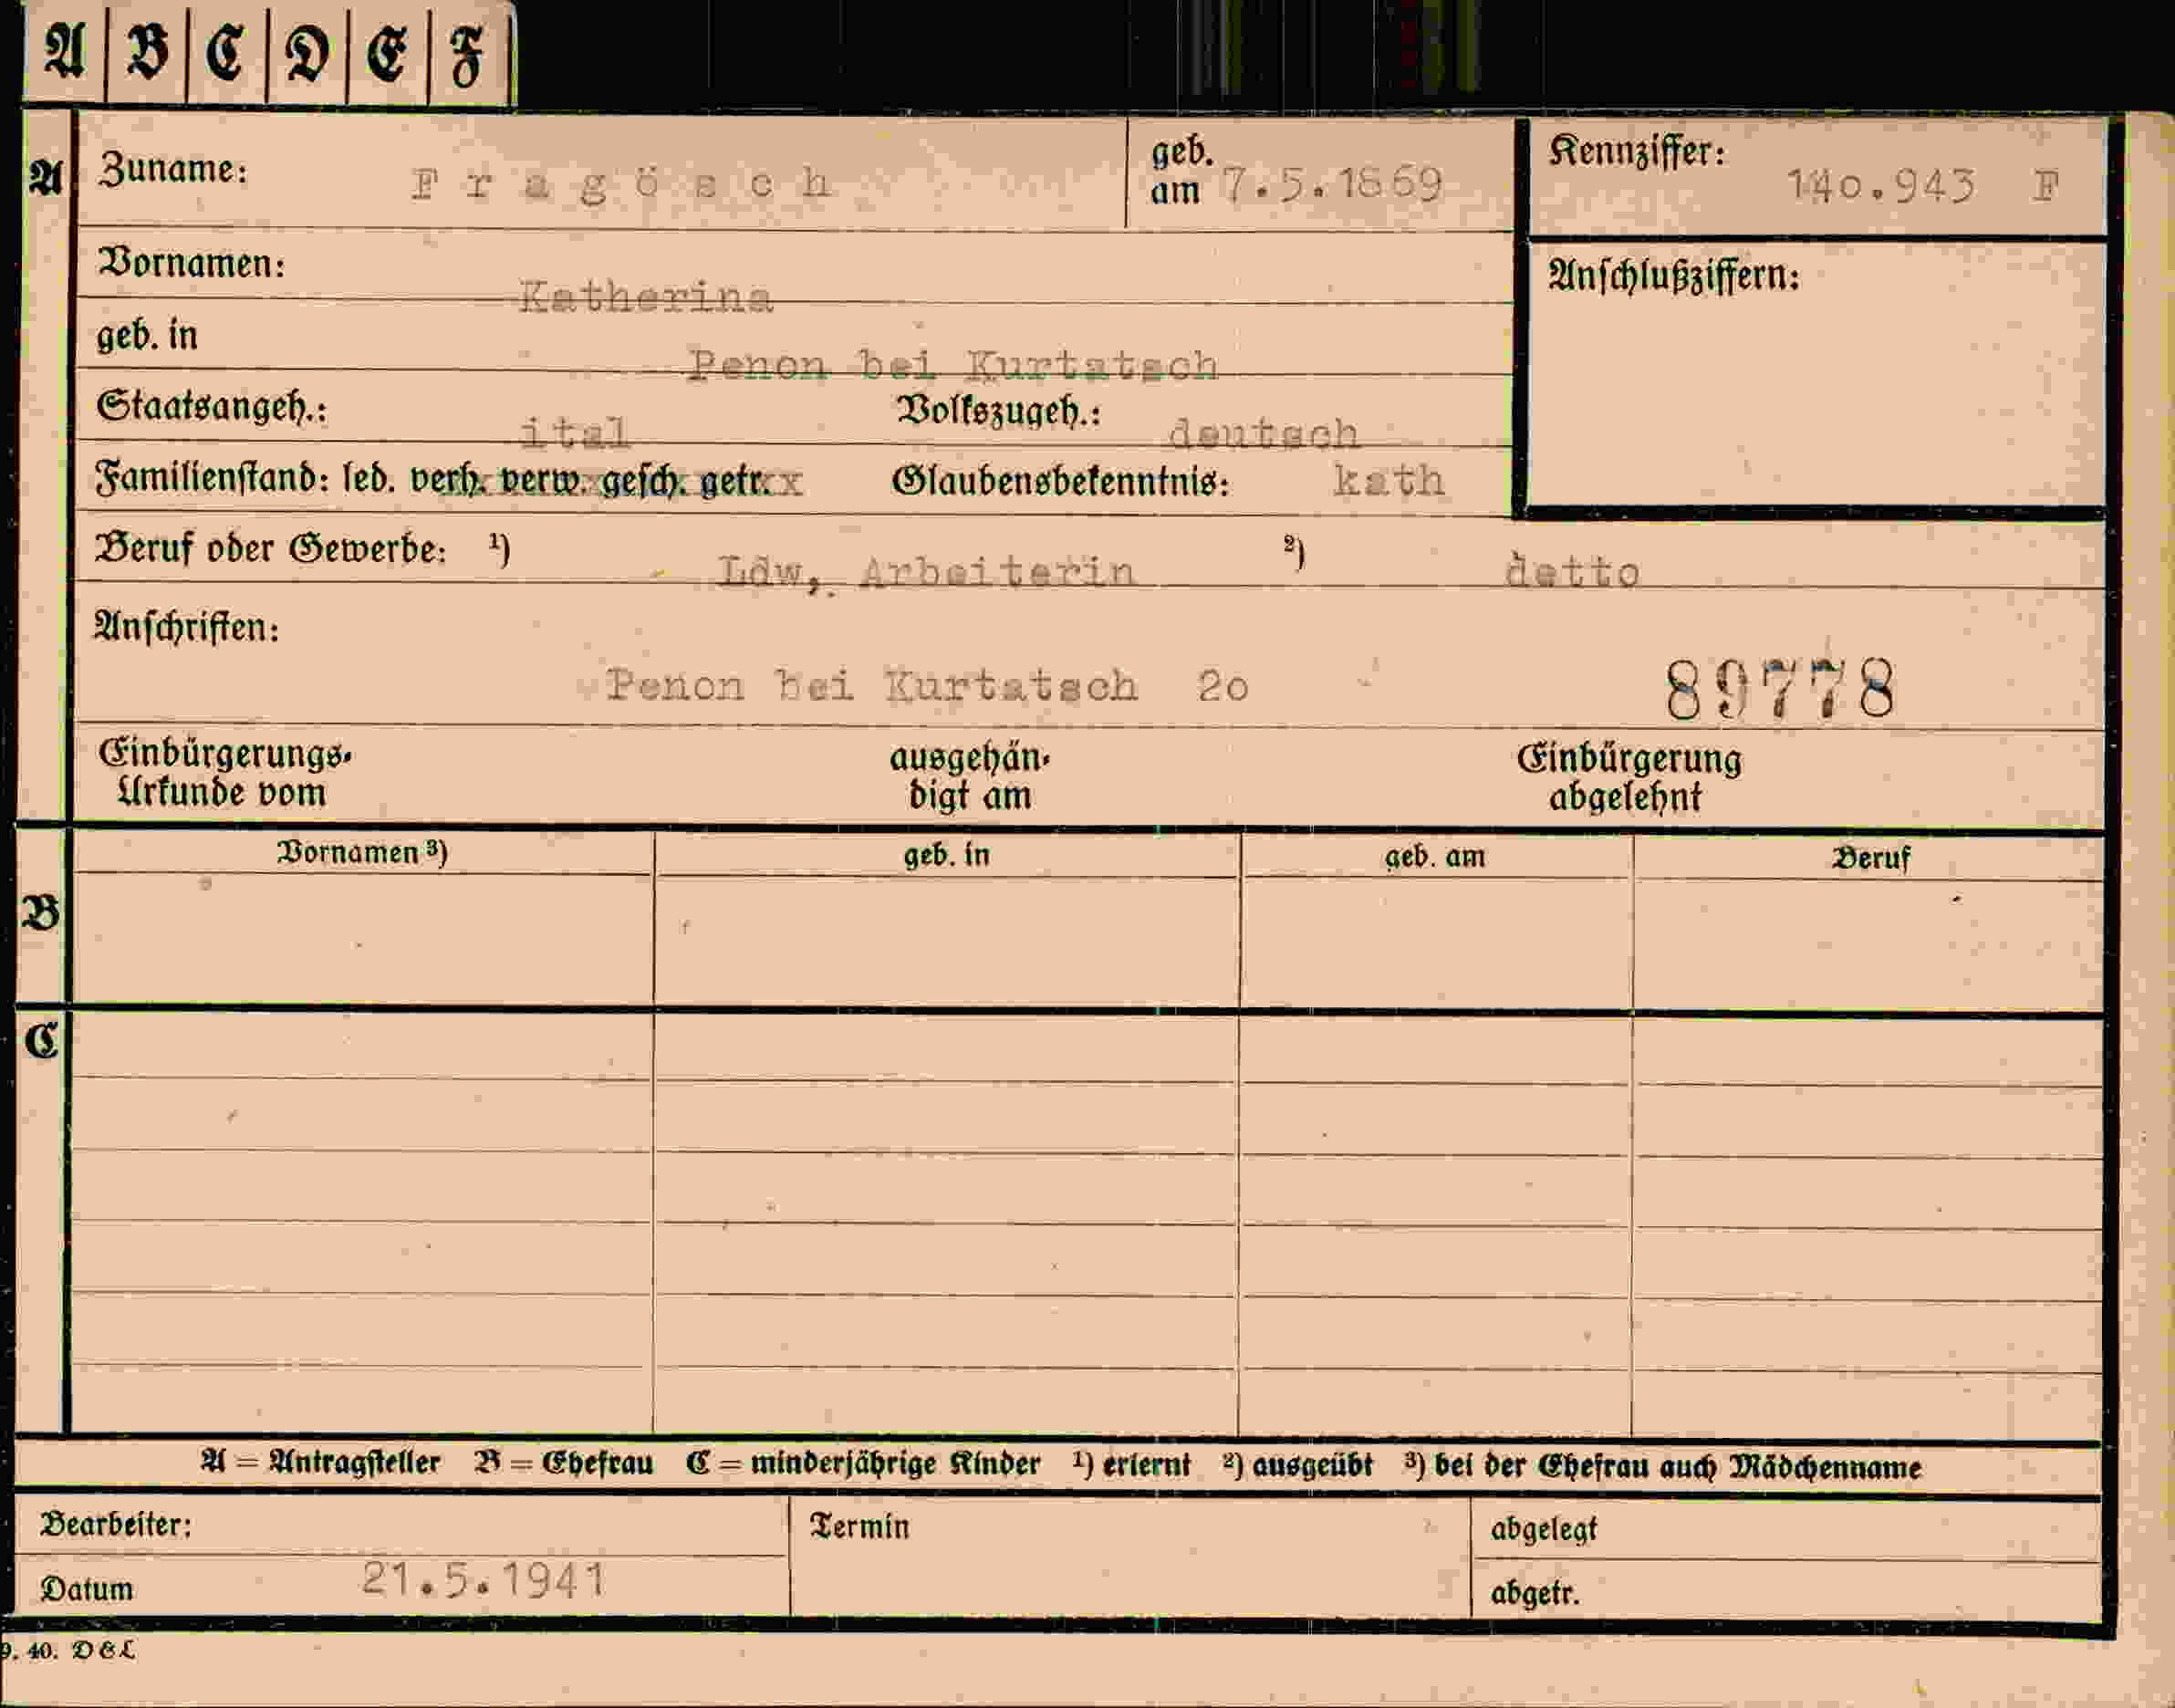 A B C D E F
A Zuname: Fragösch geb. am 7.5.1869 Kennziffer: 140.943 F
Vornamen: Katherina Anschlußziffern:
geb. in Penon bei Kurtatsch
Staatsangeh.: ital Volkszugeh.: deutsch
Familienstand: led. verh. verw. gesch. getr. Glaubensbekenntnis: kath
Beruf oder Gewerbe: ¹) Ldw, Arbeiterin ²) detto
Anschriften:
Penon bei Kurtatsch 2o 89778
Einbürgerungs- ausgehän- Einbürgerung
Urkunde vom digt am abgelehnt
Vornamen ³) geb. in geb. am Beruf
B
C
A = Antragsteller B = Ehefrau C = minderjährige Kinder ¹) erlernt ²) ausgeübt ³) bei der Ehefrau auch Mädchenname
Bearbeiter: Termin abgelegt
Datum 21.5.1941 abgetr.
9. 40. D&L